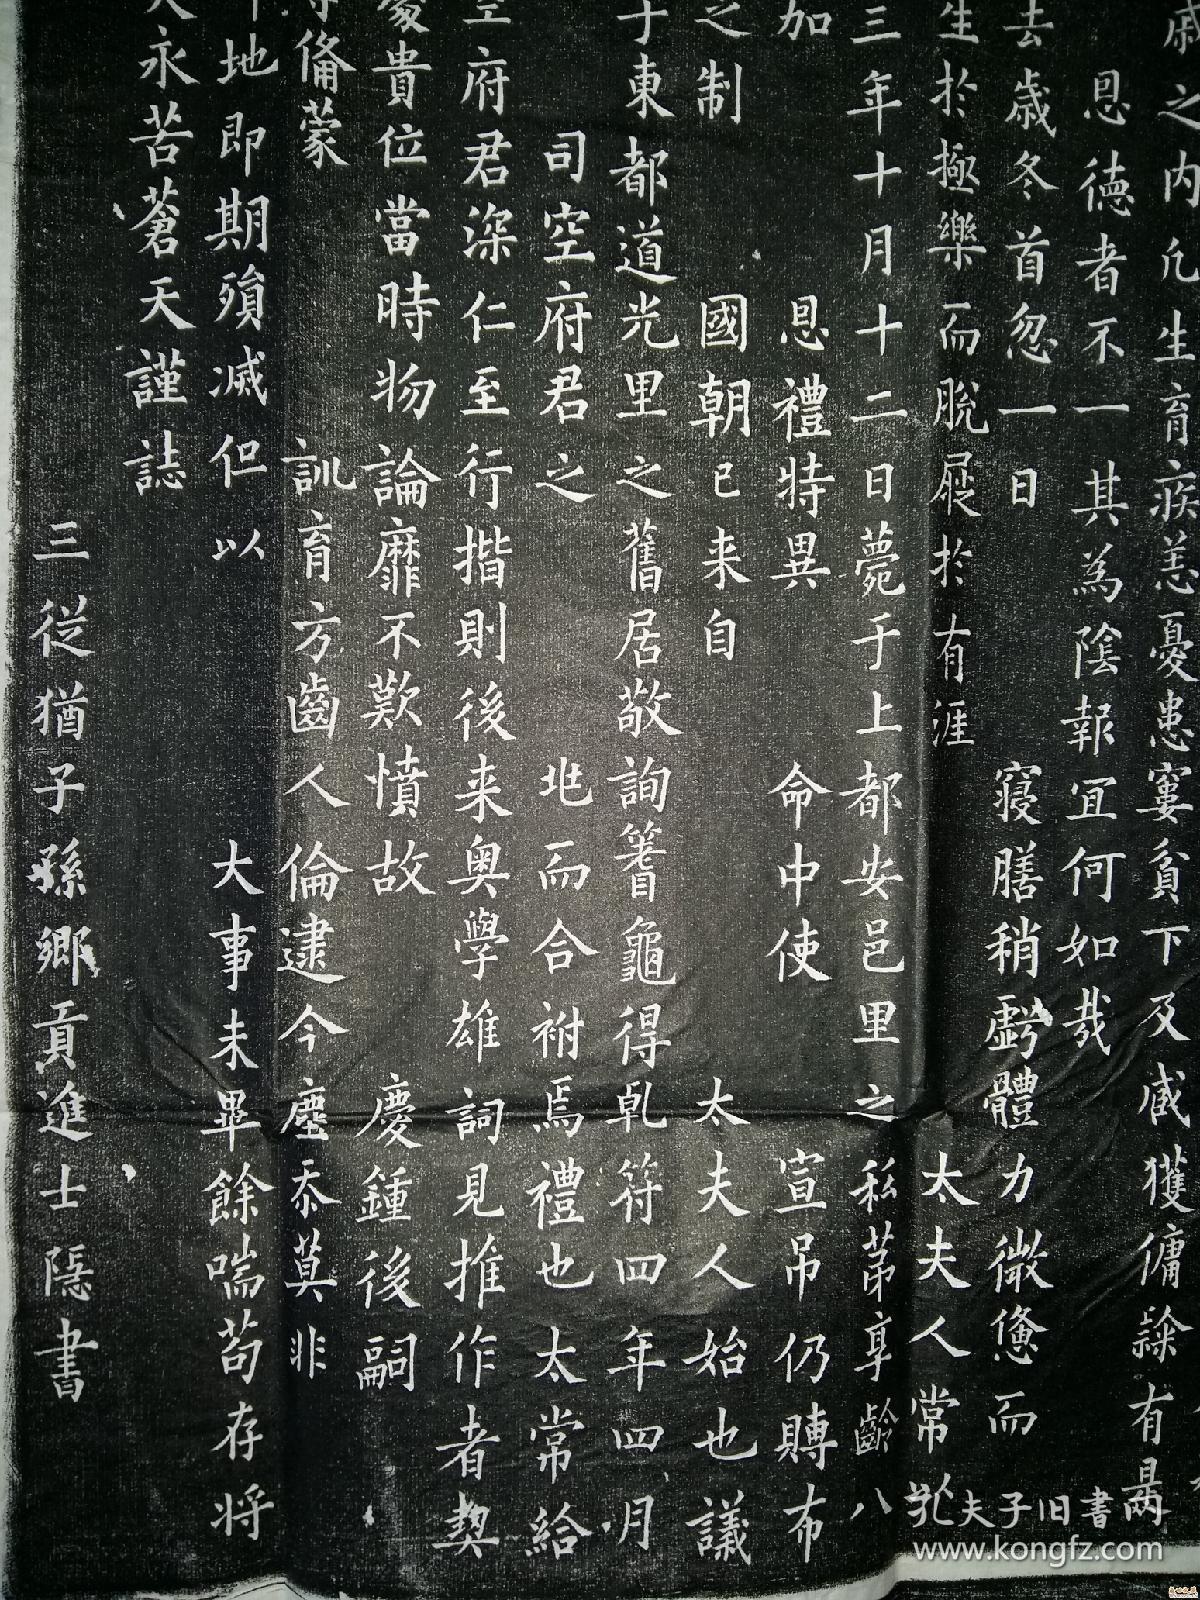 戚之内凡生育疾恙憂患窶貧下及臧獲傭隸有
恩德者不一其為陰報宜何如哉
去歲冬首忽一日 寢膳稍虧體力微憊而
生於極樂而脫屣於有涯 太夫人常以
三年十月十二日薨于上都安邑里之私第享齡八
加 恩禮特異 命中使 宣吊仍賻布
之制 國朝已来自 太夫人始也議
于東都道光里之舊居敬詢蓍龜得乹符四年四月
司空府君之 兆而合祔焉禮也太常給
空府君深仁至行揩則後来奥學雄詞見推作者契
貴位當時物論靡不歎憤故 慶鍾後嗣
脩蒙 訓育方齒人倫逮今塵忝莫非
地即期殞滅但以 大事未畢餘喘苟存将
永苦蒼天謹誌
三從猶子孫鄉貢進士隱書
孔夫子旧书网
www.kongfz.com